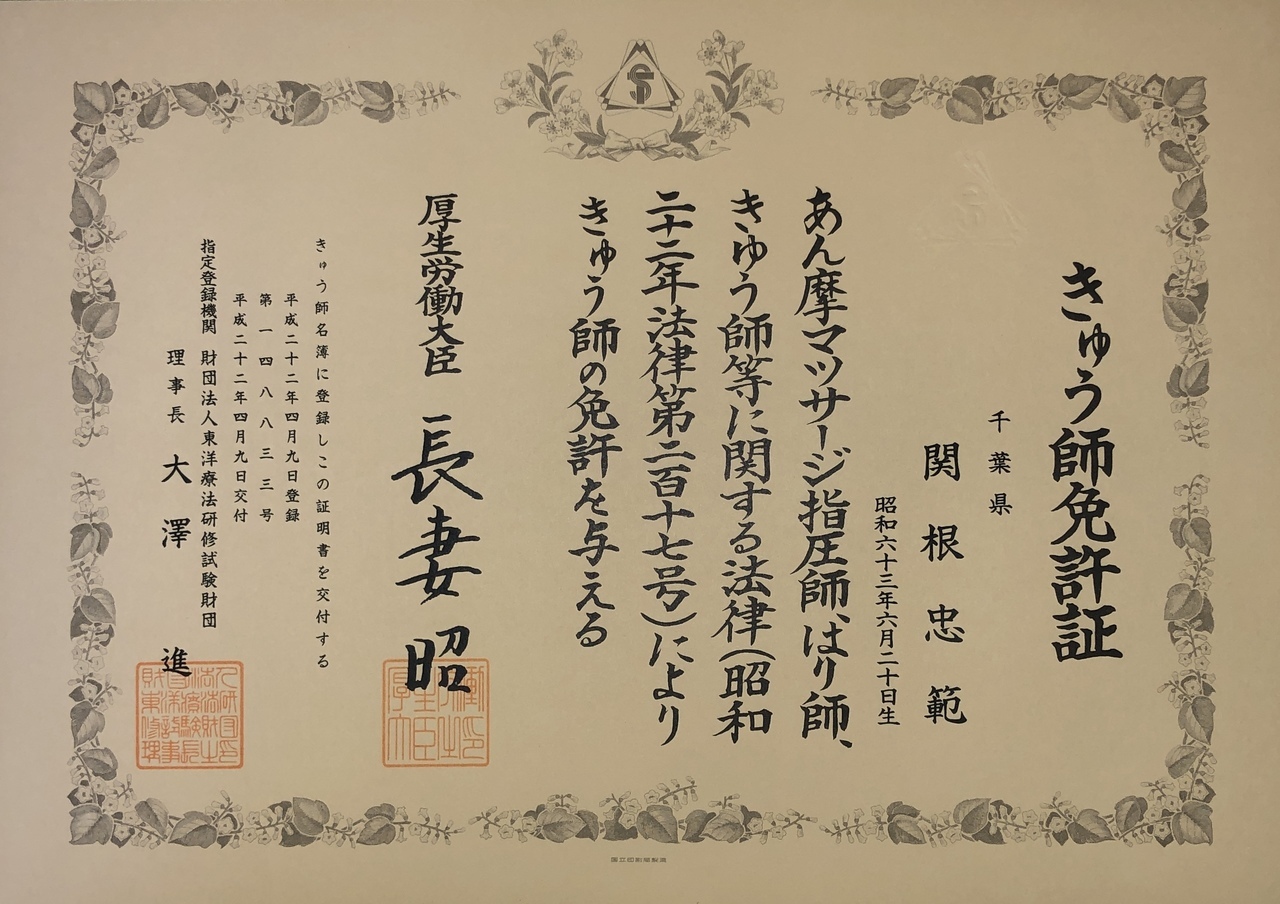 きゅう師免許証
千葉県
関根忠範
昭和六十三年六月二十日生
あん摩マツサージ指圧師、はり師、
きゆう師等に関する法律(昭和
二十二年法律第二百十七号)により
きゅう師の免許を与える
厚生労働大臣 長妻昭
きゅう師名簿に登録しこの証明書を交付する
平成二十二年四月九日登録
第一四八八三三号
平成二十二年四月九日交付
指定登録機関 財団法人東洋療法研修試験財団
理事長 大澤進
国立印刷局製造